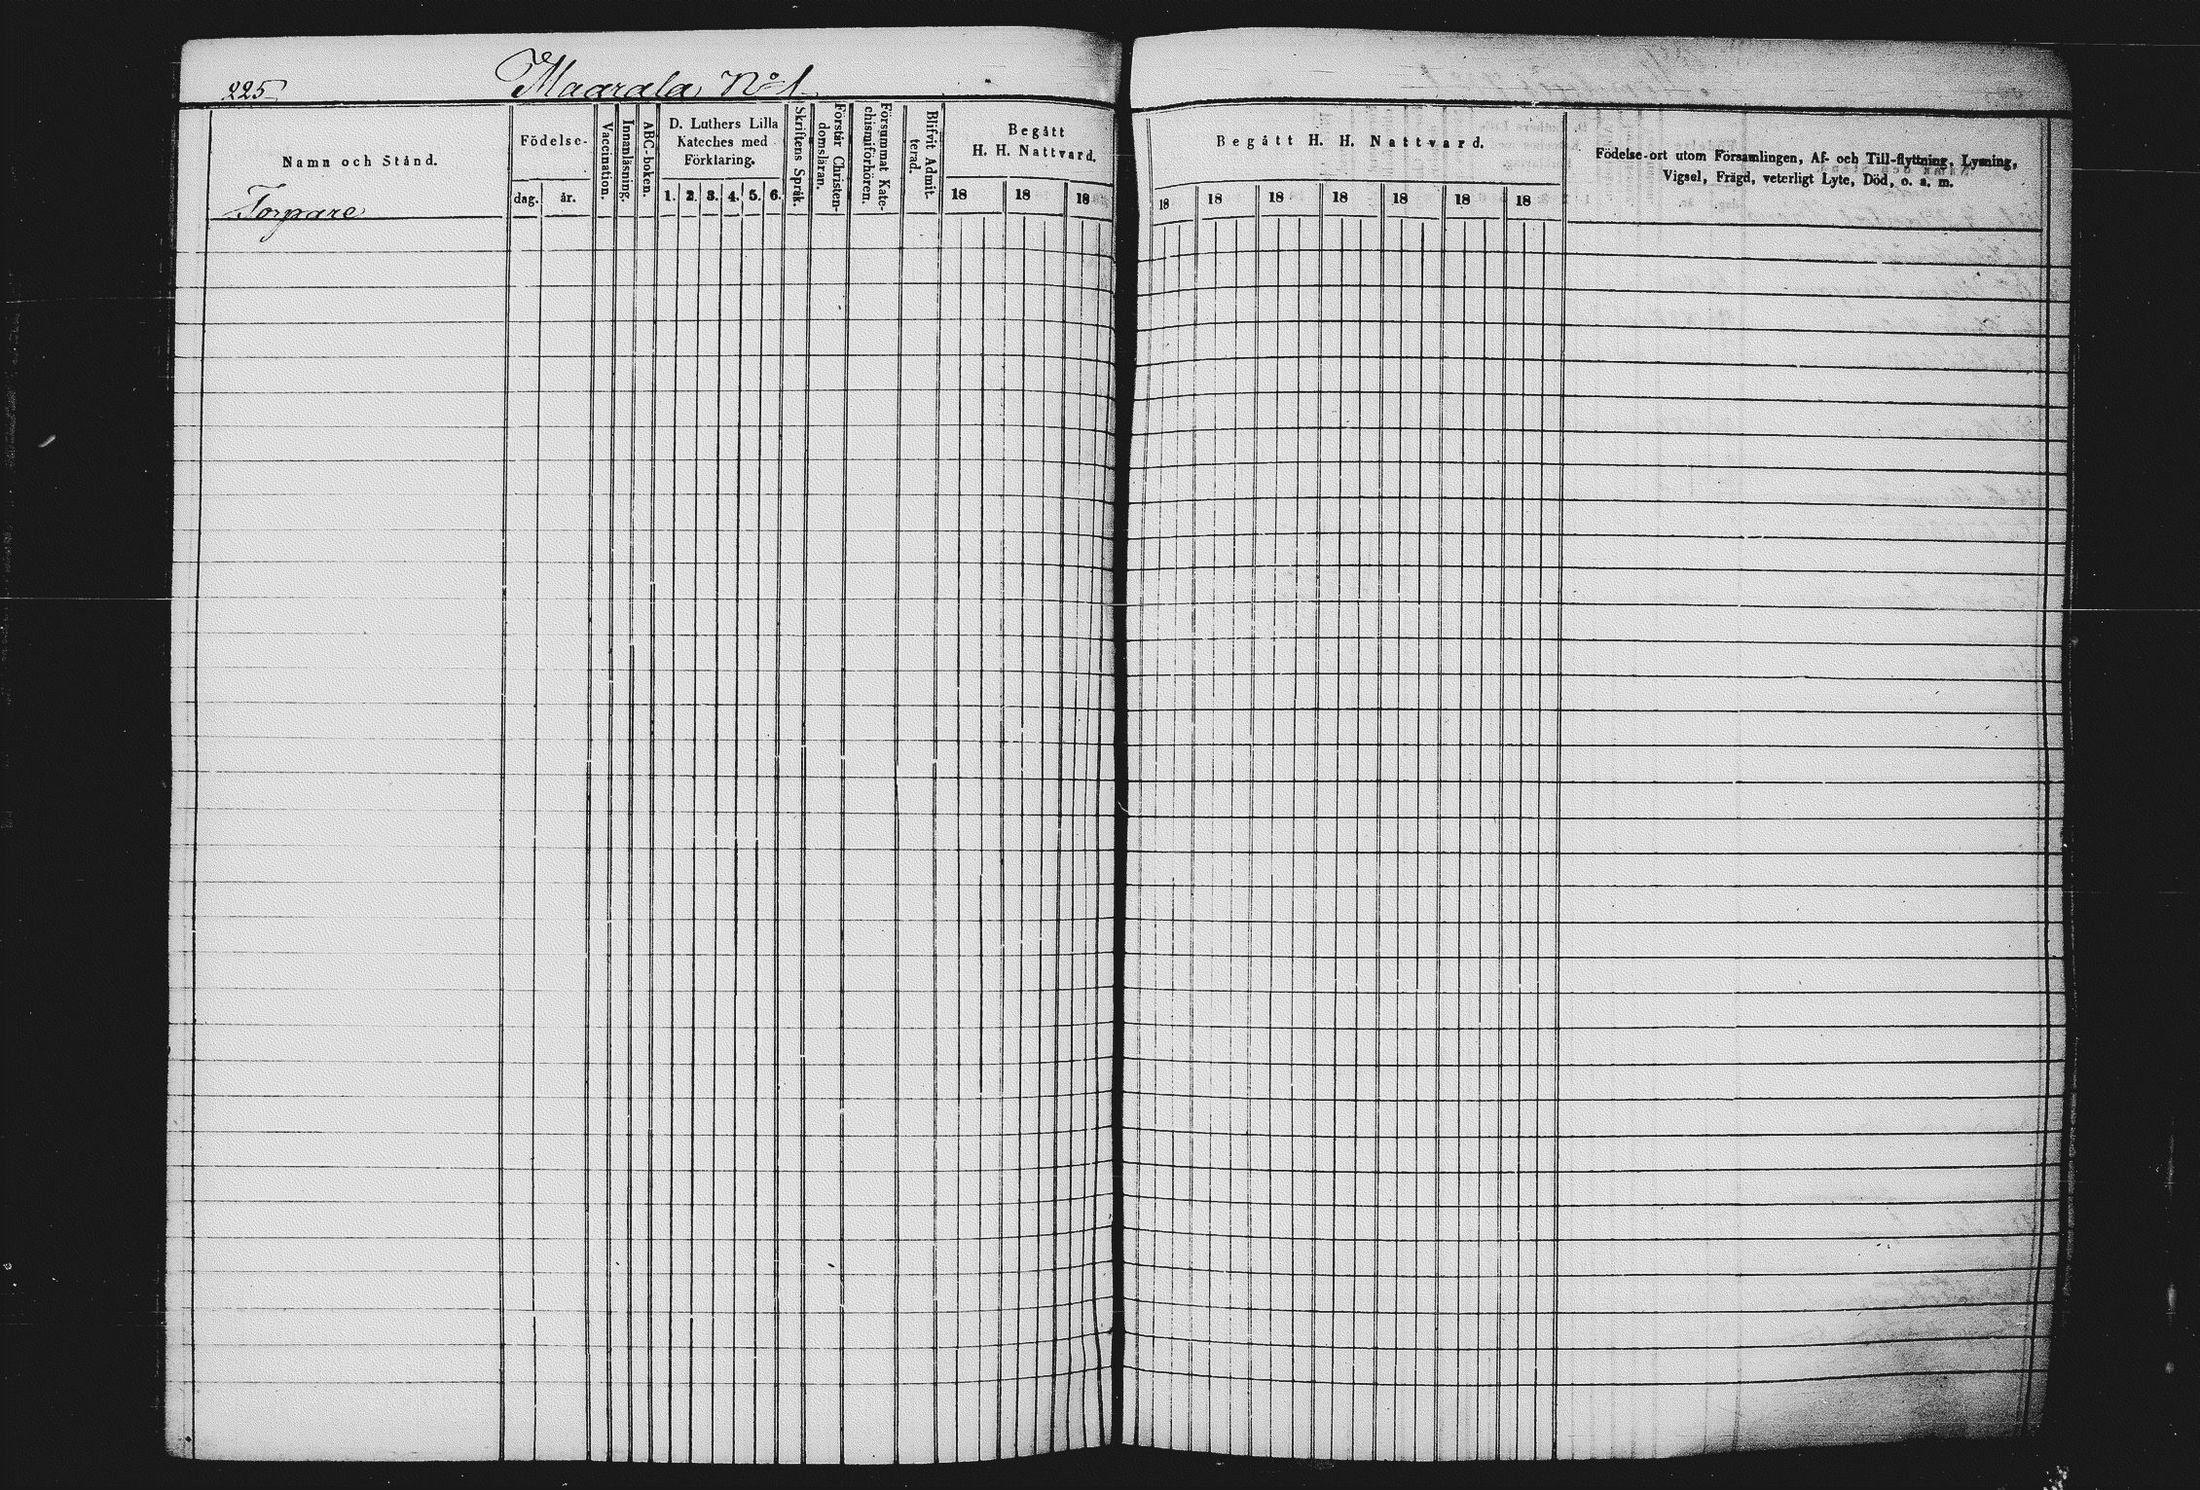 225
Maarala No 1
Namn och Stånd.
Torpare
Födelse-
dag.
år.
Vaccination.
Innanläsning.
ABC-boken.
D. Luthers Lilla
Kateches med
Förklaring.
1. 2. 3. 4. 5. 6.
Skriftens Språk.
Förstår Christen-
domsläran.
Försummat Kate-
chismiförhören.
Blifvit Admit-
terad.
Begått
H. H. Nattvard.
18 18 18
Begått H. H. Nattvard.
18 18 18 18 18 18 18
Födelse-ort utom Församlingen, Af- och Till-flyttning, Lysning,
Vigsel, Frägd, veterligt Lyte, Död, o. s. m.